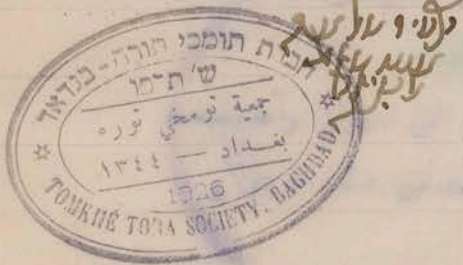 חברת תומכי תורה - בגדאד
ש' תרפו
جمعية تومخي توره
بغداد — ١٣٤٤
1926
TOMKHÉ TORA SOCIETY, BAGHDAD